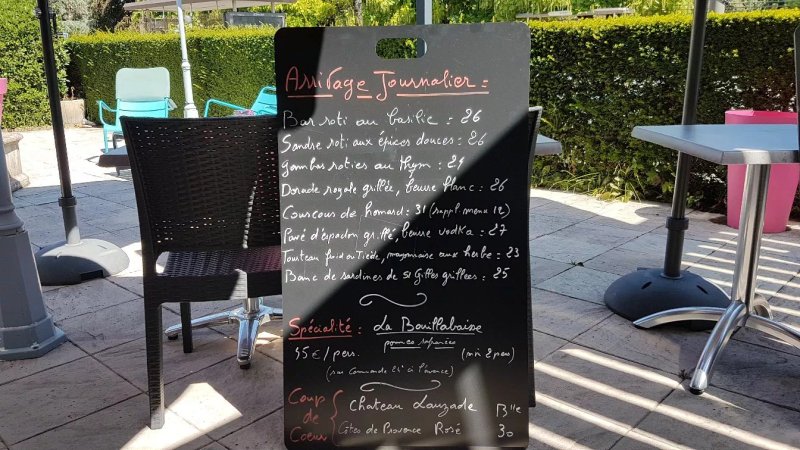 Arrivage Journalier =
Bar roti au basilic = 26
Sandre roti aux épices douces = 26
Gambas roties au thym = 29
Dorade royale grillée, beurre blanc = 26
Couscous de homard = 31 (suppl. menu 12)
Pavé d'espadon grillé, beurre vodka = 27
Tourteau froid ou Tiède, mayonnaise aux herbe = 23
Banc de sardines de St Gilles grillées = 25
Spécialité : La Bouillabaisse
45 € / pers. pommes safranées (min 2 pers)
(sur commande 24h à l'avance)
Coup de Coeur
Chateau Lauzade Blle
Côtes de Provence Rosé 30